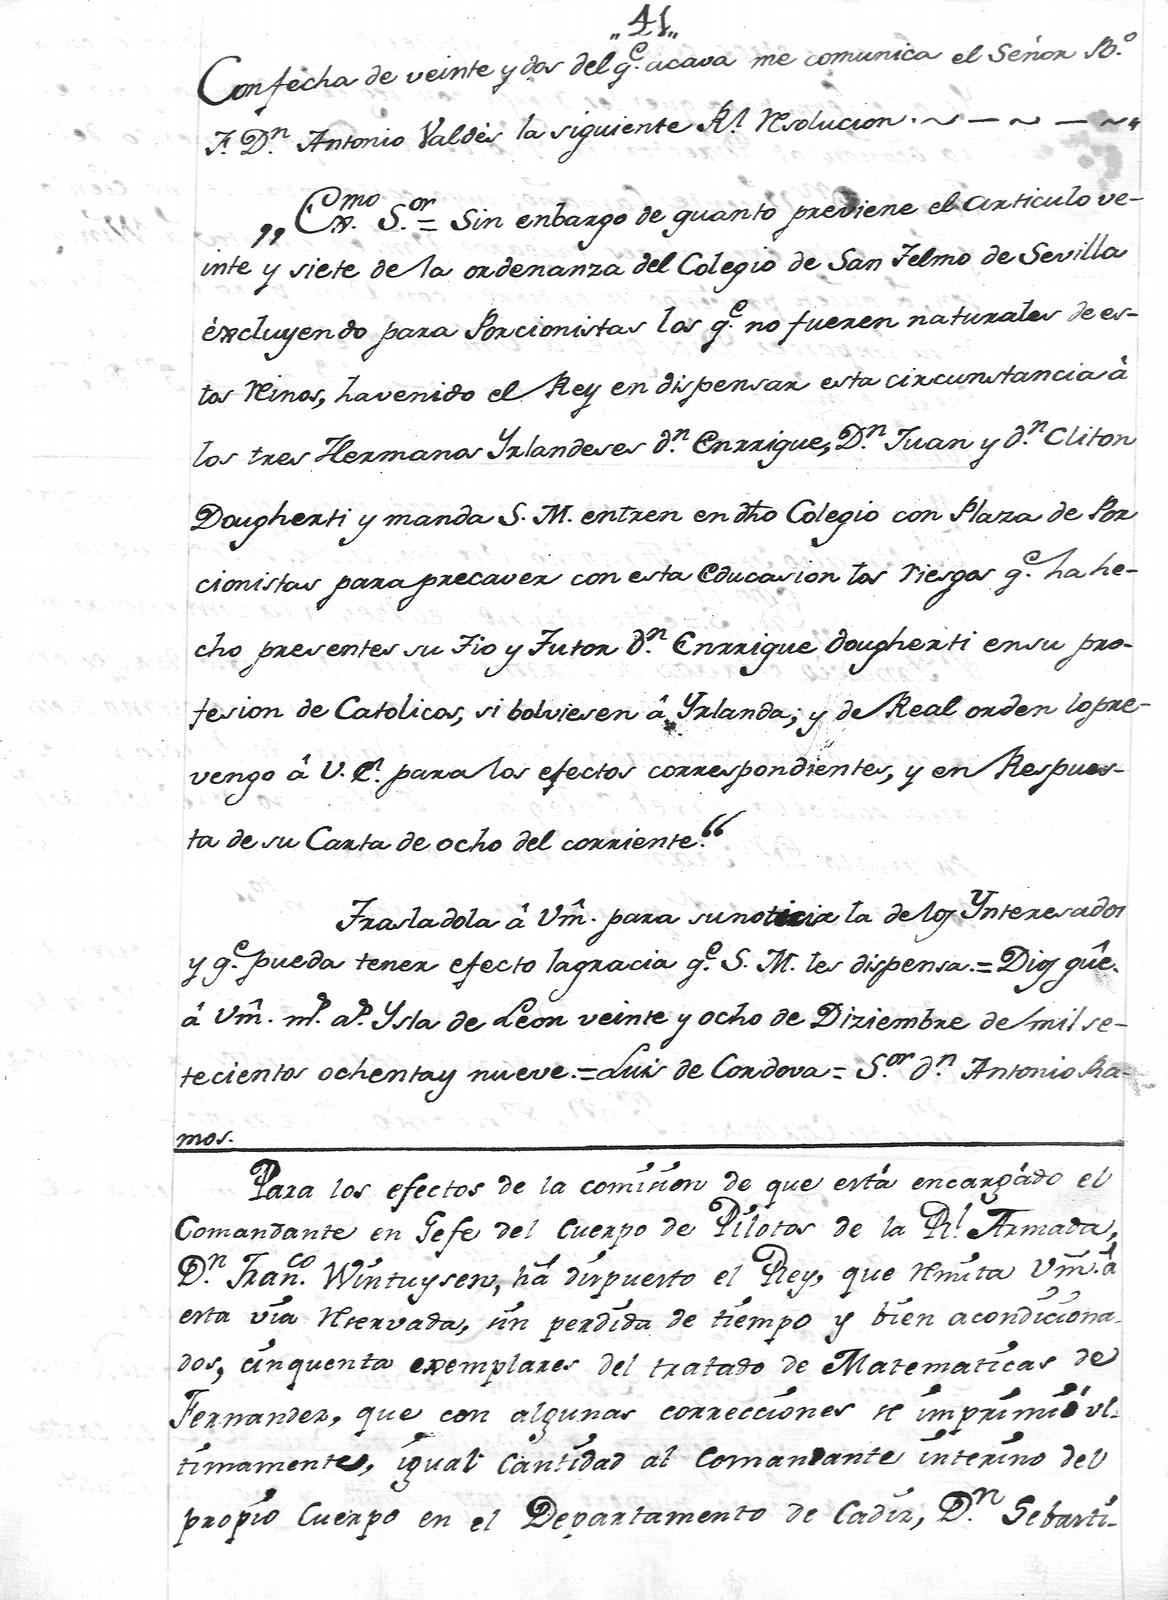 „41„
Con fecha de veinte y dos del q.e acava me comunica el Señor B.o
F. D.n Antonio Valdés la siguiente R.l Resolucion. ~ — ~ — ~„
„Ex.mo S.or = Sin enbargo de quanto previene el articulo ve-
inte y siete de la ordenanza del Colegio de San Telmo de Sevilla
éxcluyendo para Porcionistas los q.e no fueren naturales de es-
tos Reinos, ha venido el Rey en dispensar esta circunstancia â
los tres Hermanos Yrlandeses d.n Enrrigue, D.n Juan y d.n Cliton
Dougherti y manda S. M. entren en dho Colegio con Plaza de Por
cionistas para precaver con esta Educasion los riesgos q.e ha he-
cho presentes su Tio y Tutor d.n Enrrigue dougherti en su pro-
fesion de Catolicos, si bolviesen â Yrlanda; y de Real orden lo pre-
vengo â V. E. para los efectos correspondientes, y en Respues-
ta de su Carta de ocho del corriente.“
Trasladola â Vm̂. para su noticia la de los Ynteresados
y q.e pueda tener efecto la gracia q.e S. M. les dispensa. = Dios gûe.
â Vm̂. m.s a.s Ysla de Leon veinte y ocho de Diziembre de mil se-
tecientos ochenta y nueve. = Luis de Cordova = S.or d.n Antonio Ra-
mos.
Para los efectos de la comision de que está encargádo el
Comandante en Gefe del Cuerpo de Pilotos de la R.l Armada,
D.n Fran.co Wintuysen, há dispuesto el Rey, que remita Vm̂. á
esta via reservada, sin perdida de tiempo y bien acondiciona-
dos, cinquenta exemplares del tratado de Matematicas de
Fernandez, que con algunas correcciones se imprimió ul-
timamente, igual cantidad al Comandante interino del
propio Cuerpo en el Departamento de Cadiz, D.n Sebasti-